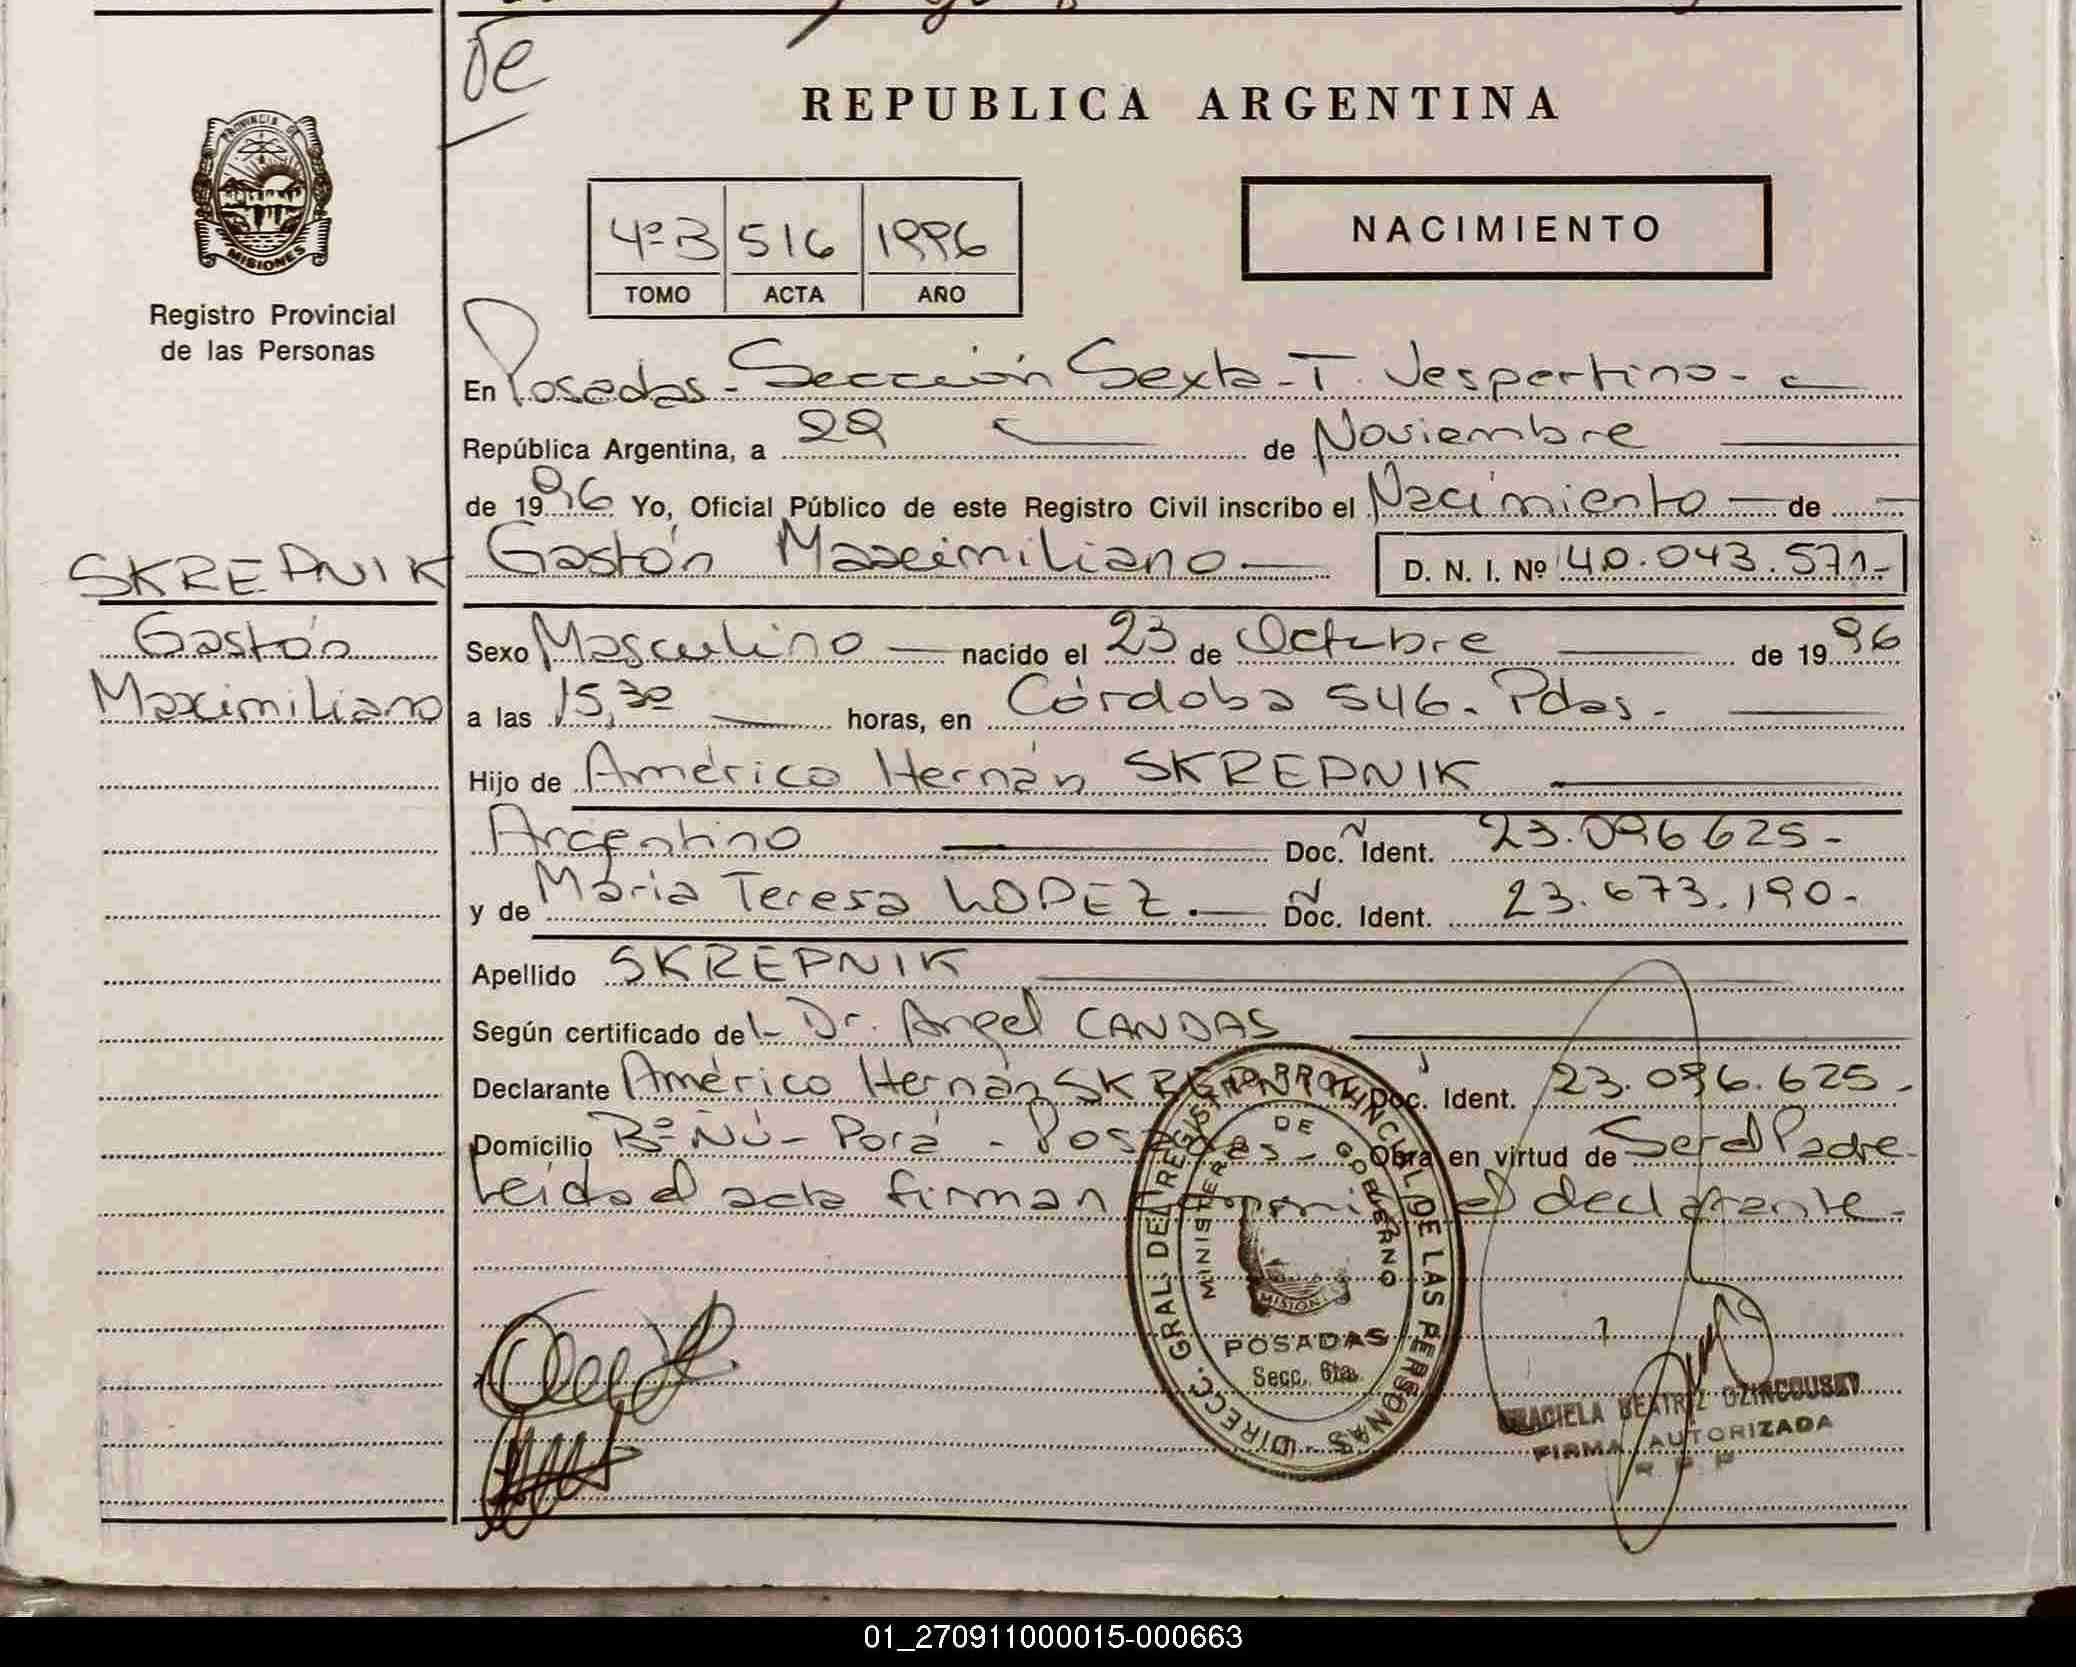 de
REPUBLICA ARGENTINA
PROVINCIA DE
MISIONES
Registro Provincial
de las Personas
4º B 516 1996
TOMO ACTA AÑO
NACIMIENTO
En Posadas - Sección Sexta - T. Vespertino -
República Argentina, a 29 de Noviembre
de 1996 Yo, Oficial Público de este Registro Civil inscribo el Nacimiento de
Gastón Maximiliano D. N. I. Nº 40.043.571-
SKREPNIK
Gastón
Maximiliano
Sexo Masculino nacido el 23 de Octubre de 1996
a las 15,30 horas, en Córdoba 546. Pdas.
Hijo de Américo Hernán SKREPNIK
Argentino Doc. Ident. 23.096625-
y de María Teresa LOPEZ. Doc. Ident. 23.673.190-
Apellido SKREPNIK
Según certificado del Dr. Angel CANDAS
Declarante Américo Hernán SKREPNIK Doc. Ident. 23.096.625-
Domicilio Bº Ñú - Porá - Posadas - Obra en virtud de Ser el Padre-
Leida el acta firman conmigo el declarante-
DIRECC. GRAL. DEL REGISTRO PROVINCIAL DE LAS PERSONAS
MINISTERIO DE GOBIERNO
MISIONES
POSADAS
Secc. 6ta.
GRACIELA BEATRIZ
FIRMA AUTORIZADA
R P P
01_270911000015-000663